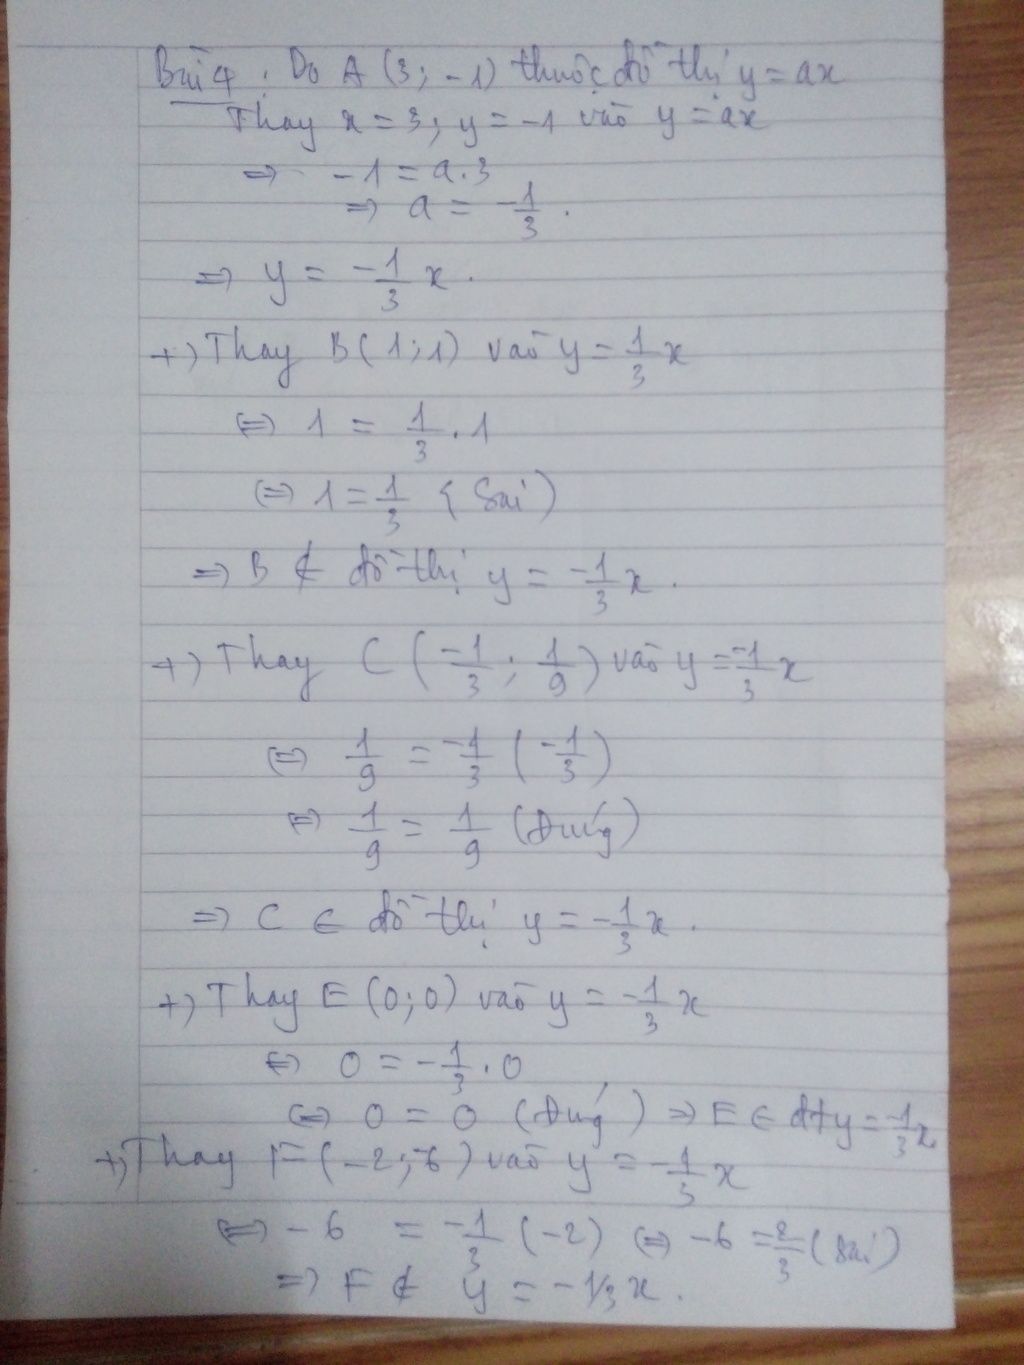 Bài 4 : Do A (3; -1) thuộc đồ thị y = ax
Thay x = 3; y = -1 vào y = ax
=> -1 = a.3
=> a = -1/3.
=> y = -1/3 x.
+) Thay B(1;1) vào y = 1/3 x
<=> 1 = 1/3 . 1
<=> 1 = 1/3 (Sai)
=> B ∉ đồ thị y = -1/3 x.
+) Thay C (-1/3 ; 1/9) vào y = -1/3 x
<=> 1/9 = -1/3 (-1/3)
<=> 1/9 = 1/9 (Đúng)
=> C ∈ đồ thị y = -1/3 x.
+) Thay E (0;0) vào y = -1/3 x
<=> 0 = -1/3 . 0
<=> 0 = 0 (Đúng) => E ∈ đt y = -1/3 x
+) Thay F (-2; -6) vào y = -1/3 x
<=> -6 = -1/3 (-2) <=> -6 = 2/3 (Sai)
=> F ∉ y = -1/3 x.